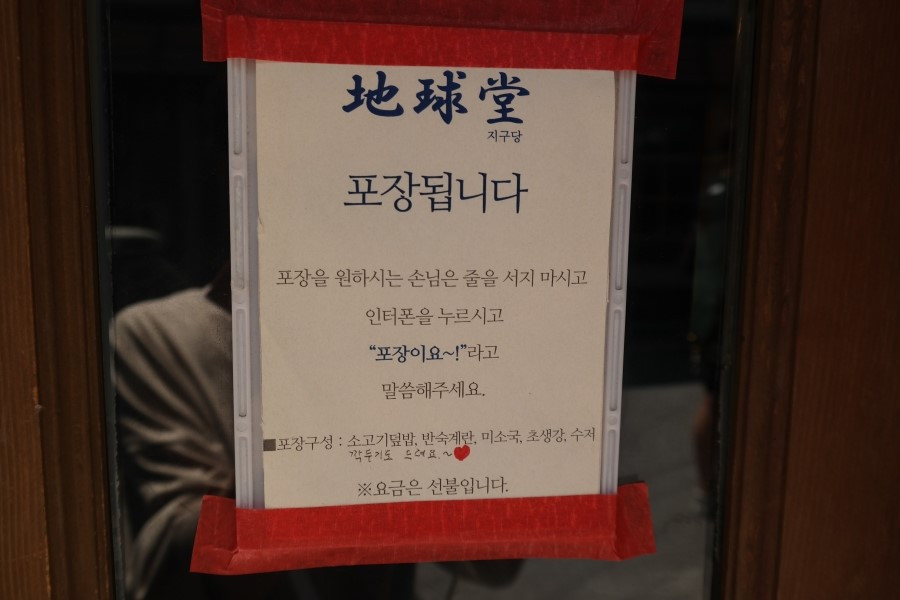 地球堂
지구당
포장됩니다
포장을 원하시는 손님은 줄을 서지 마시고
인터폰을 누르시고
“포장이요~!”라고
말씀해주세요.
■포장구성 : 소고기덮밥, 반숙계란, 미소국, 초생강, 수저
깍두기도 드려요.~♥
※요금은 선불입니다.